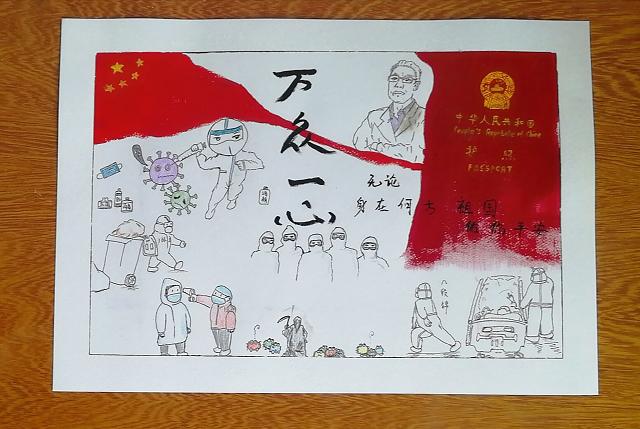 万众一心
中华人民共和国
People's Republic of China
护 照
PASSPORT
无论
身在何方 祖国
平安